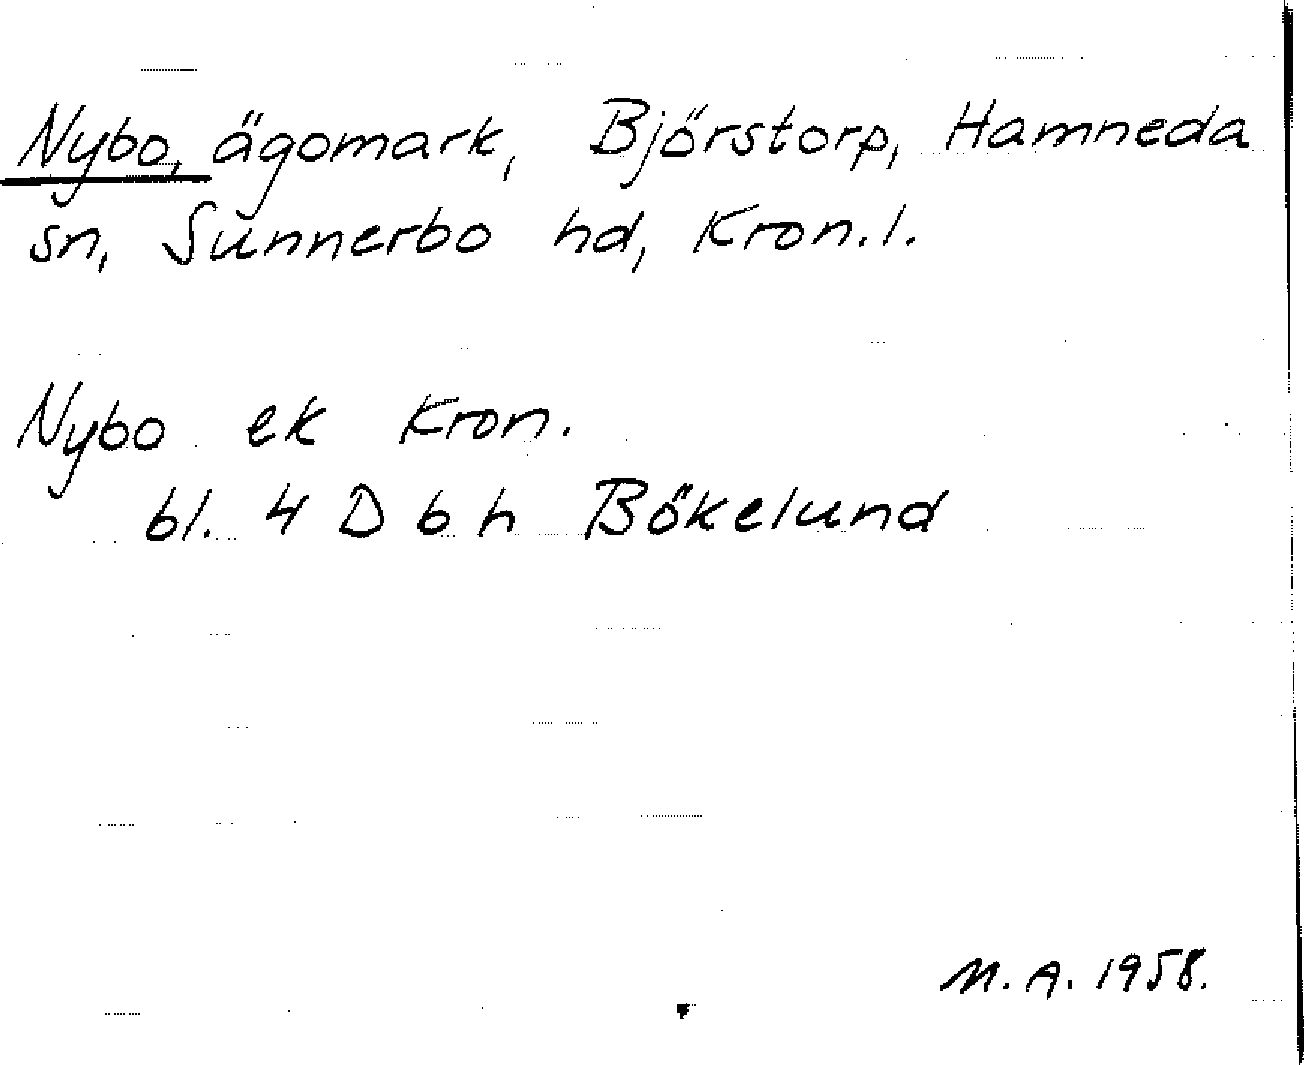 Nybo, ägomark, Björstorp, Hamneda
sn, Sunnerbo hd, Kron.l.
Nybo ek Kron.
bl. 4 D b h Bökelund
M.A. 1958.